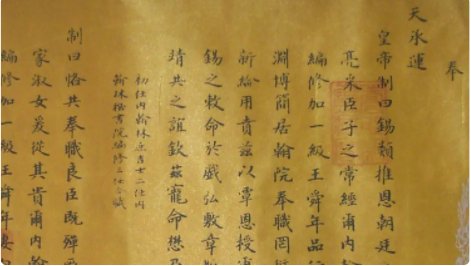 奉
天承運
皇帝制曰錫類推恩朝廷
亮采臣子之常經爾內翰
編修加一級王舜年品行
淵博簡居翰院奉職罔
新綸用賁茲以覃恩授
錫之敕命於戲弘敷章
靖共之誼欽茲寵命懋乃
初任內翰林庶吉士二任內
翰林秘書院編修三任今職
制曰恪共奉職良臣既殫
家淑女爰從其貴爾內翰
編修加一級王舜年